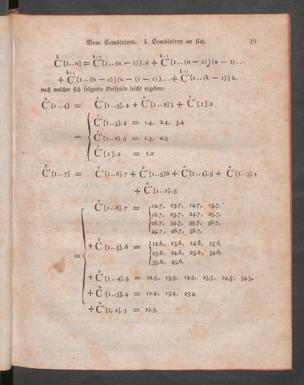 Vom Combiniren. I. Combiniren an sich. 39
k k-1 k-1
C'[1..n] = C'[1..(n − 1)].n + C'[1..(n − 2)](n − 1)...
k-1 k-1
+ C'[1..(n − r − 1)](n − r)... + C'[1..(k − 1)] k.
nach welcher sich folgende Beispiele leicht ergeben:
C'[1..4] = C'[1..3].4 + C'[1..2]3 + C'[1].2
C'[1..3].4 = 1.4, 2.4, 3.4
= C'[1..2].3 = 1.3, 2.3
C'[1].2 = 1.2
C'[1..7] = C'[1..6].7 + C'[1..5]6 + C'[1..4].5 + C'[1..3].4
+ C'[1..2].3
C'[1..6].7 = 12.7, 13.7, 14.7, 15.7,
16.7, 23.7, 24.7, 25.7,
26.7, 34.7, 35.7, 36.7,
45.7, 46.7, 56.7,
= + C'[1..5].6 = 12.6, 13.6, 14.6, 15.6,
23.6, 24.6, 25.6, 34.6,
35.6, 45.6,
+ C'[1..4].5 = 12.5, 13.5, 14.5, 23.5, 24.5, 34.5,
+ C'[1..3].4 = 12.4, 13.4, 23.4,
+ C'[1, 2].3 = 12.3,